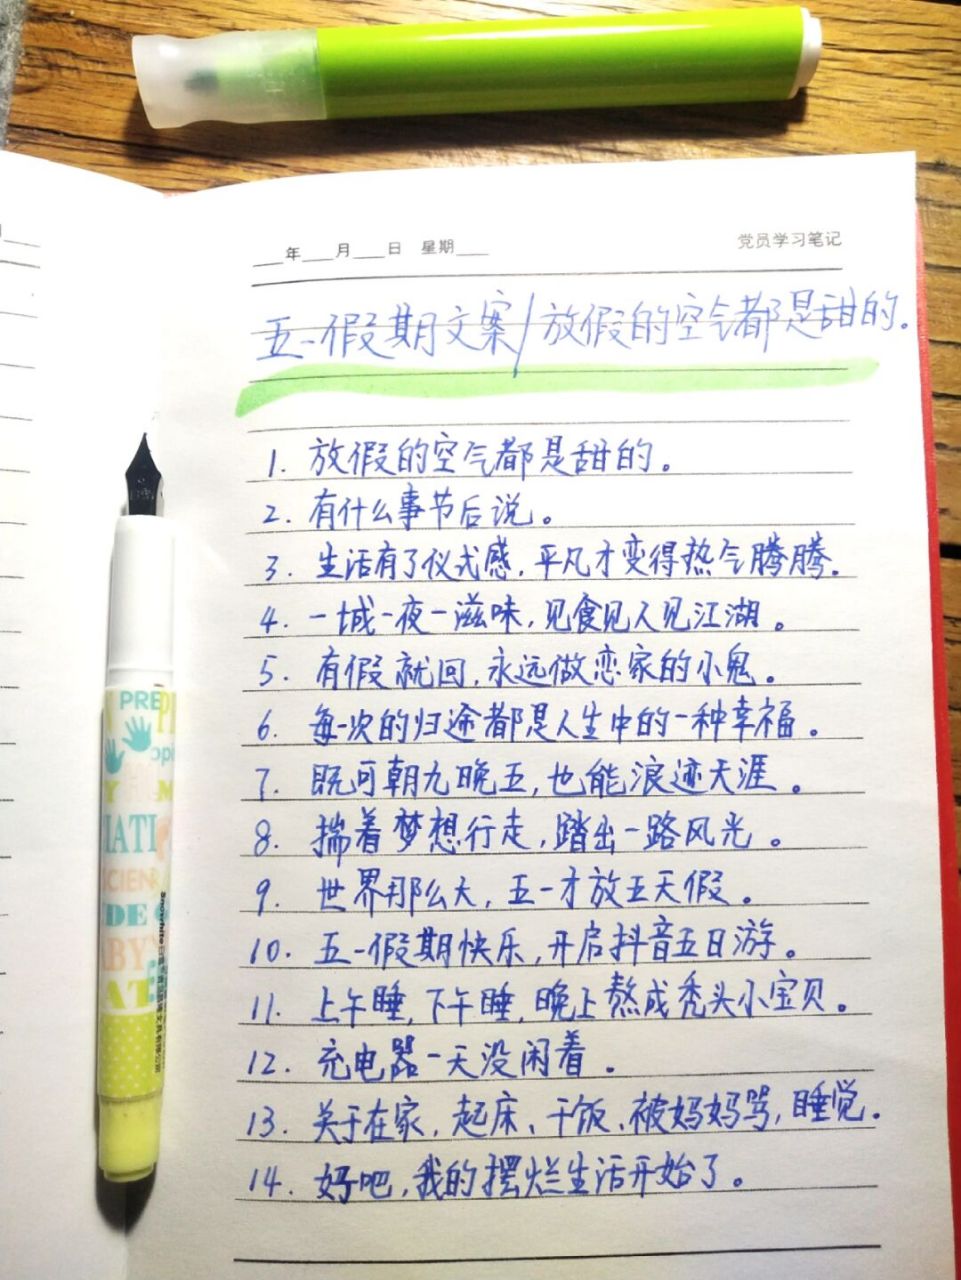 年 月 日 星期
党员学习笔记
五一假期文案/放假的空气都是甜的。
1. 放假的空气都是甜的。
2. 有什么事节后说。
3. 生活有了仪式感,平凡才变得热气腾腾.
4. 一城一夜一滋味,见食见人见江湖。
5. 有假就回,永远做恋家的小鬼。
6. 每一次的归途都是人生中的一种幸福。
7. 既可朝九晚五,也能浪迹天涯。
8. 揣着梦想行走,踏出一路风光。
9. 世界那么大,五一才放五天假。
10. 五一假期快乐,开启抖音五日游。
11. 上午睡,下午睡,晚上熬成秃头小宝贝。
12. 充电器一天没闲着。
13. 关于在家,起床、干饭、被妈妈骂,睡觉.
14. 好吧,我的摆烂生活开始了。
PRE
IATI
CIEN
DE
BY
AT
Snowhite